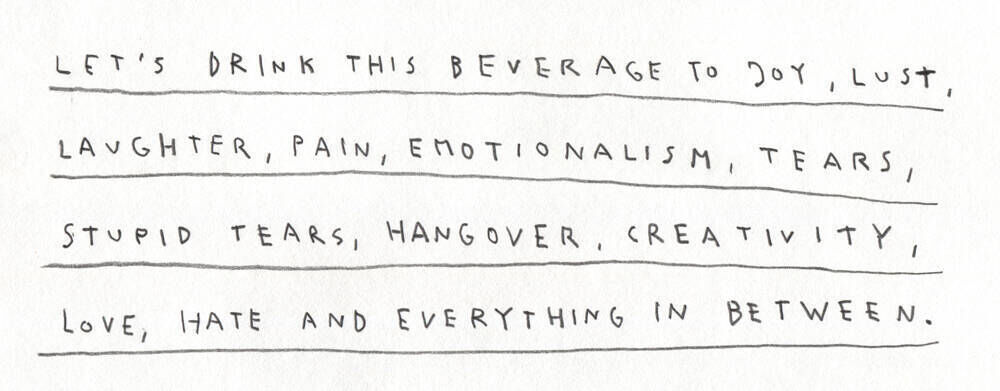 LET'S DRINK THIS BEVERAGE TO JOY, LUST,
LAUGHTER, PAIN, EMOTIONALISM, TEARS,
STUPID TEARS, HANGOVER, CREATIVITY,
LOVE, HATE AND EVERYTHING IN BETWEEN.